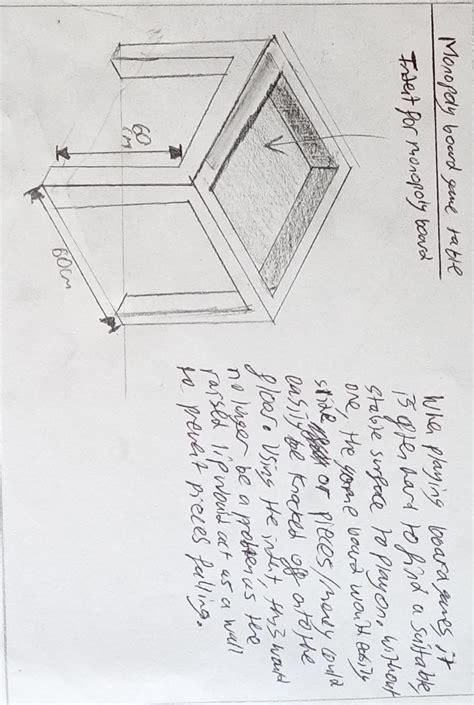 Monopoly board game table
Indent for monopoly board
60
cm
60cm
When playing board games, it
is often hard to find a suitable,
stable surface to play on. Without
one, the game board would easily
slide or pieces/money could
easily be knocked off onto the
floor. Using the indent, this would
no longer be a problem as the
raised lip would act as a wall
to prevent pieces falling.